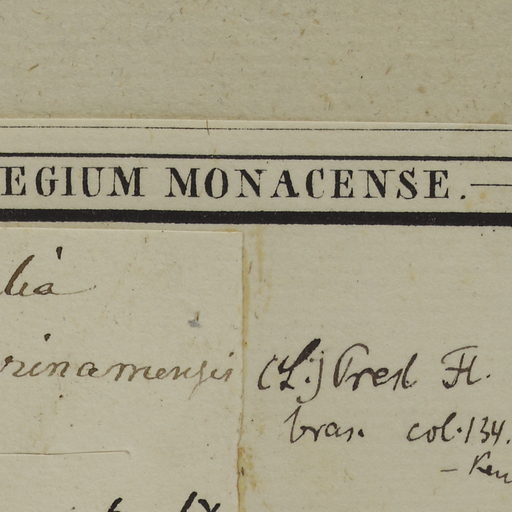 EGIUM MONACENSE.
lia
rinamensis (L.) Presl Fl.
bras. col. 134.